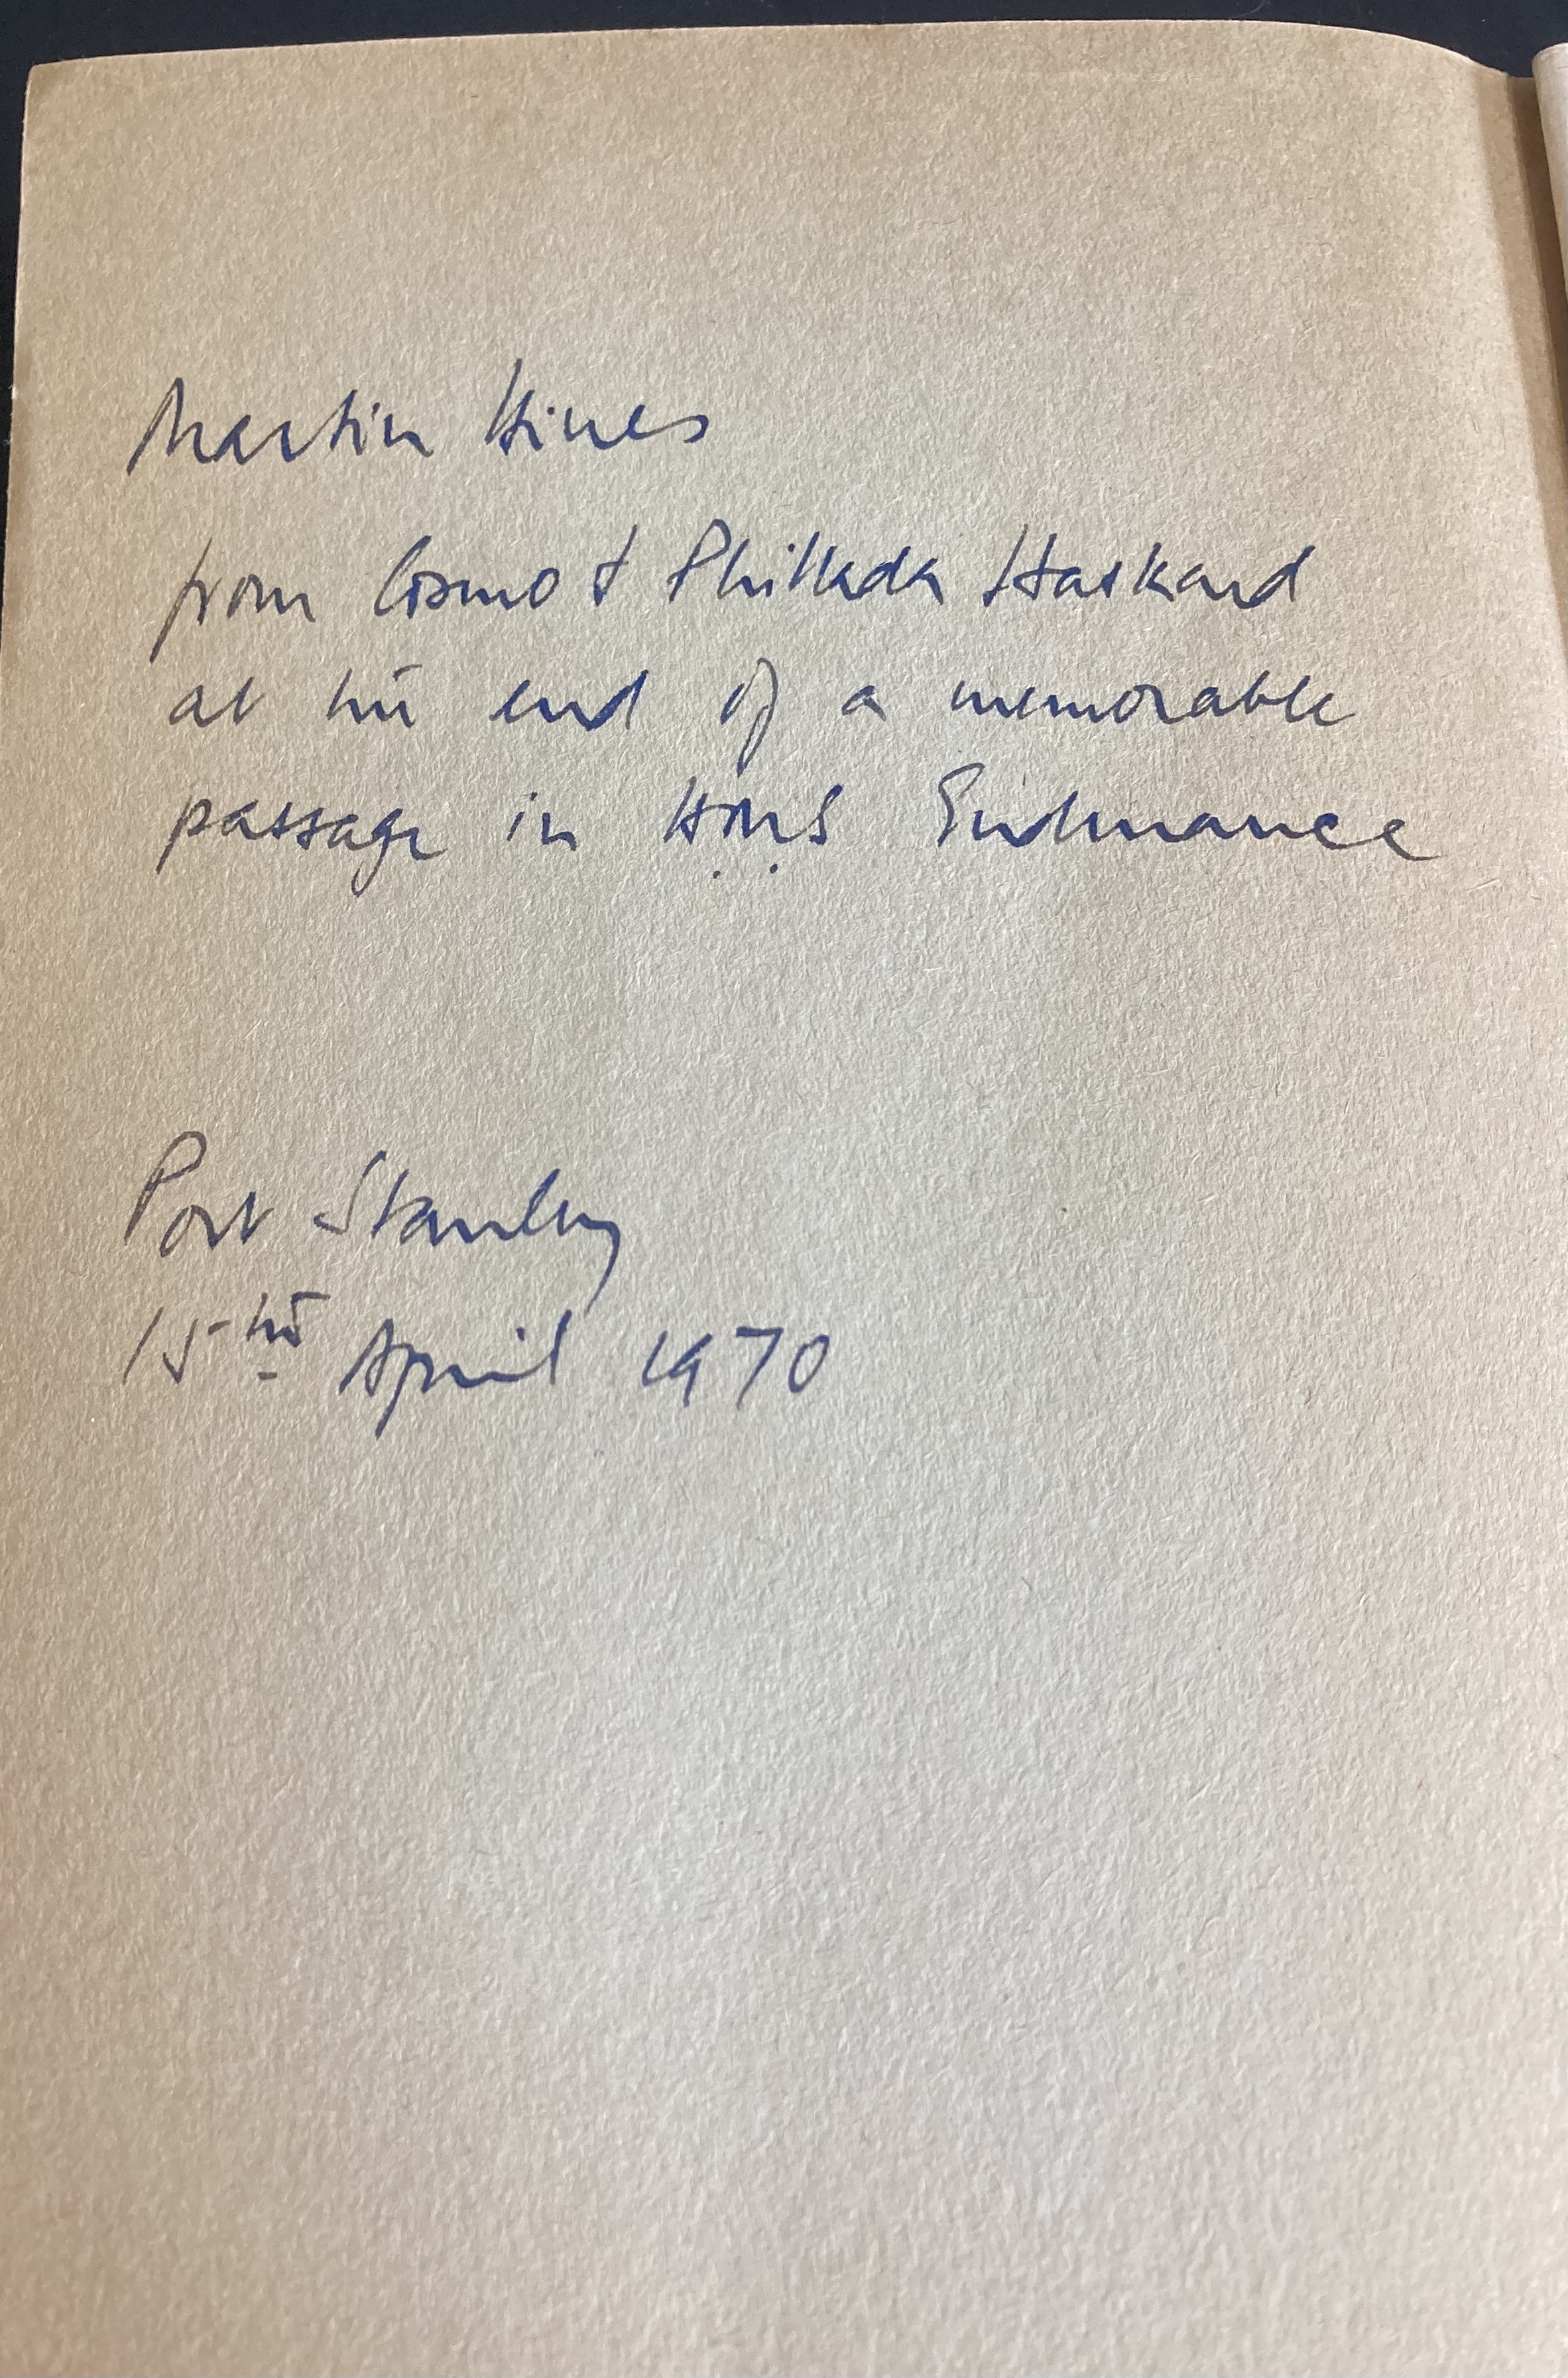 Martin Hines
from Cosmo & Phillada Haskard
at the end of a memorable
passage in H.M.S Endurance
Port Stanley
15th April 1970